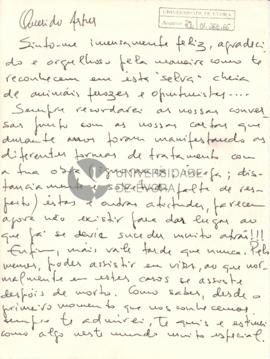 UNIVERSIDADE DE EVORA
Querido Artur
Sinto-me imensamente feliz, agradeci
do e orgulhoso pela maneira como te
reconhecem em esta "selva" cheia
de animais ferozes e oportunistas....
Sempre recordarei as nossas conver
sas junto com as nossas cartas que
durante anos foram manifestando as
diferentes formas de tratamento com
a tua obra
UNIVERSIDADE
DE ÉVORA
tanciamente falta de res-
peito) estas e outras atitudes, parecem
agora não existir para dar lugar ao
que já se devia suceder muito atrás!!!
Enfim, mais vale tarde que nunca. Pelo
menos, poder assistir em vida, ao que nor
malmente em estes casos se assiste
depois de morto. Como sabes, desde o
primeiro momento que nos conhecemos
sempre te admirei, te quis e estimei
como algo neste mundo muito especial.